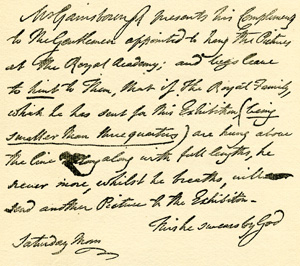 Mr Gainsborough presents his Compliments
to The Gentlemen appointed to hang the Pictures
at The Royal Academy; and begs leave
to hint to Them, that if The Royal Family,
which he has sent for this Exhibition (being
smaller than three quarters) are hung above
the line along with full lengths, he
never more, whilst he breaths, will
send another Picture to the Exhibition_
This he swears by God
Saturday Morn